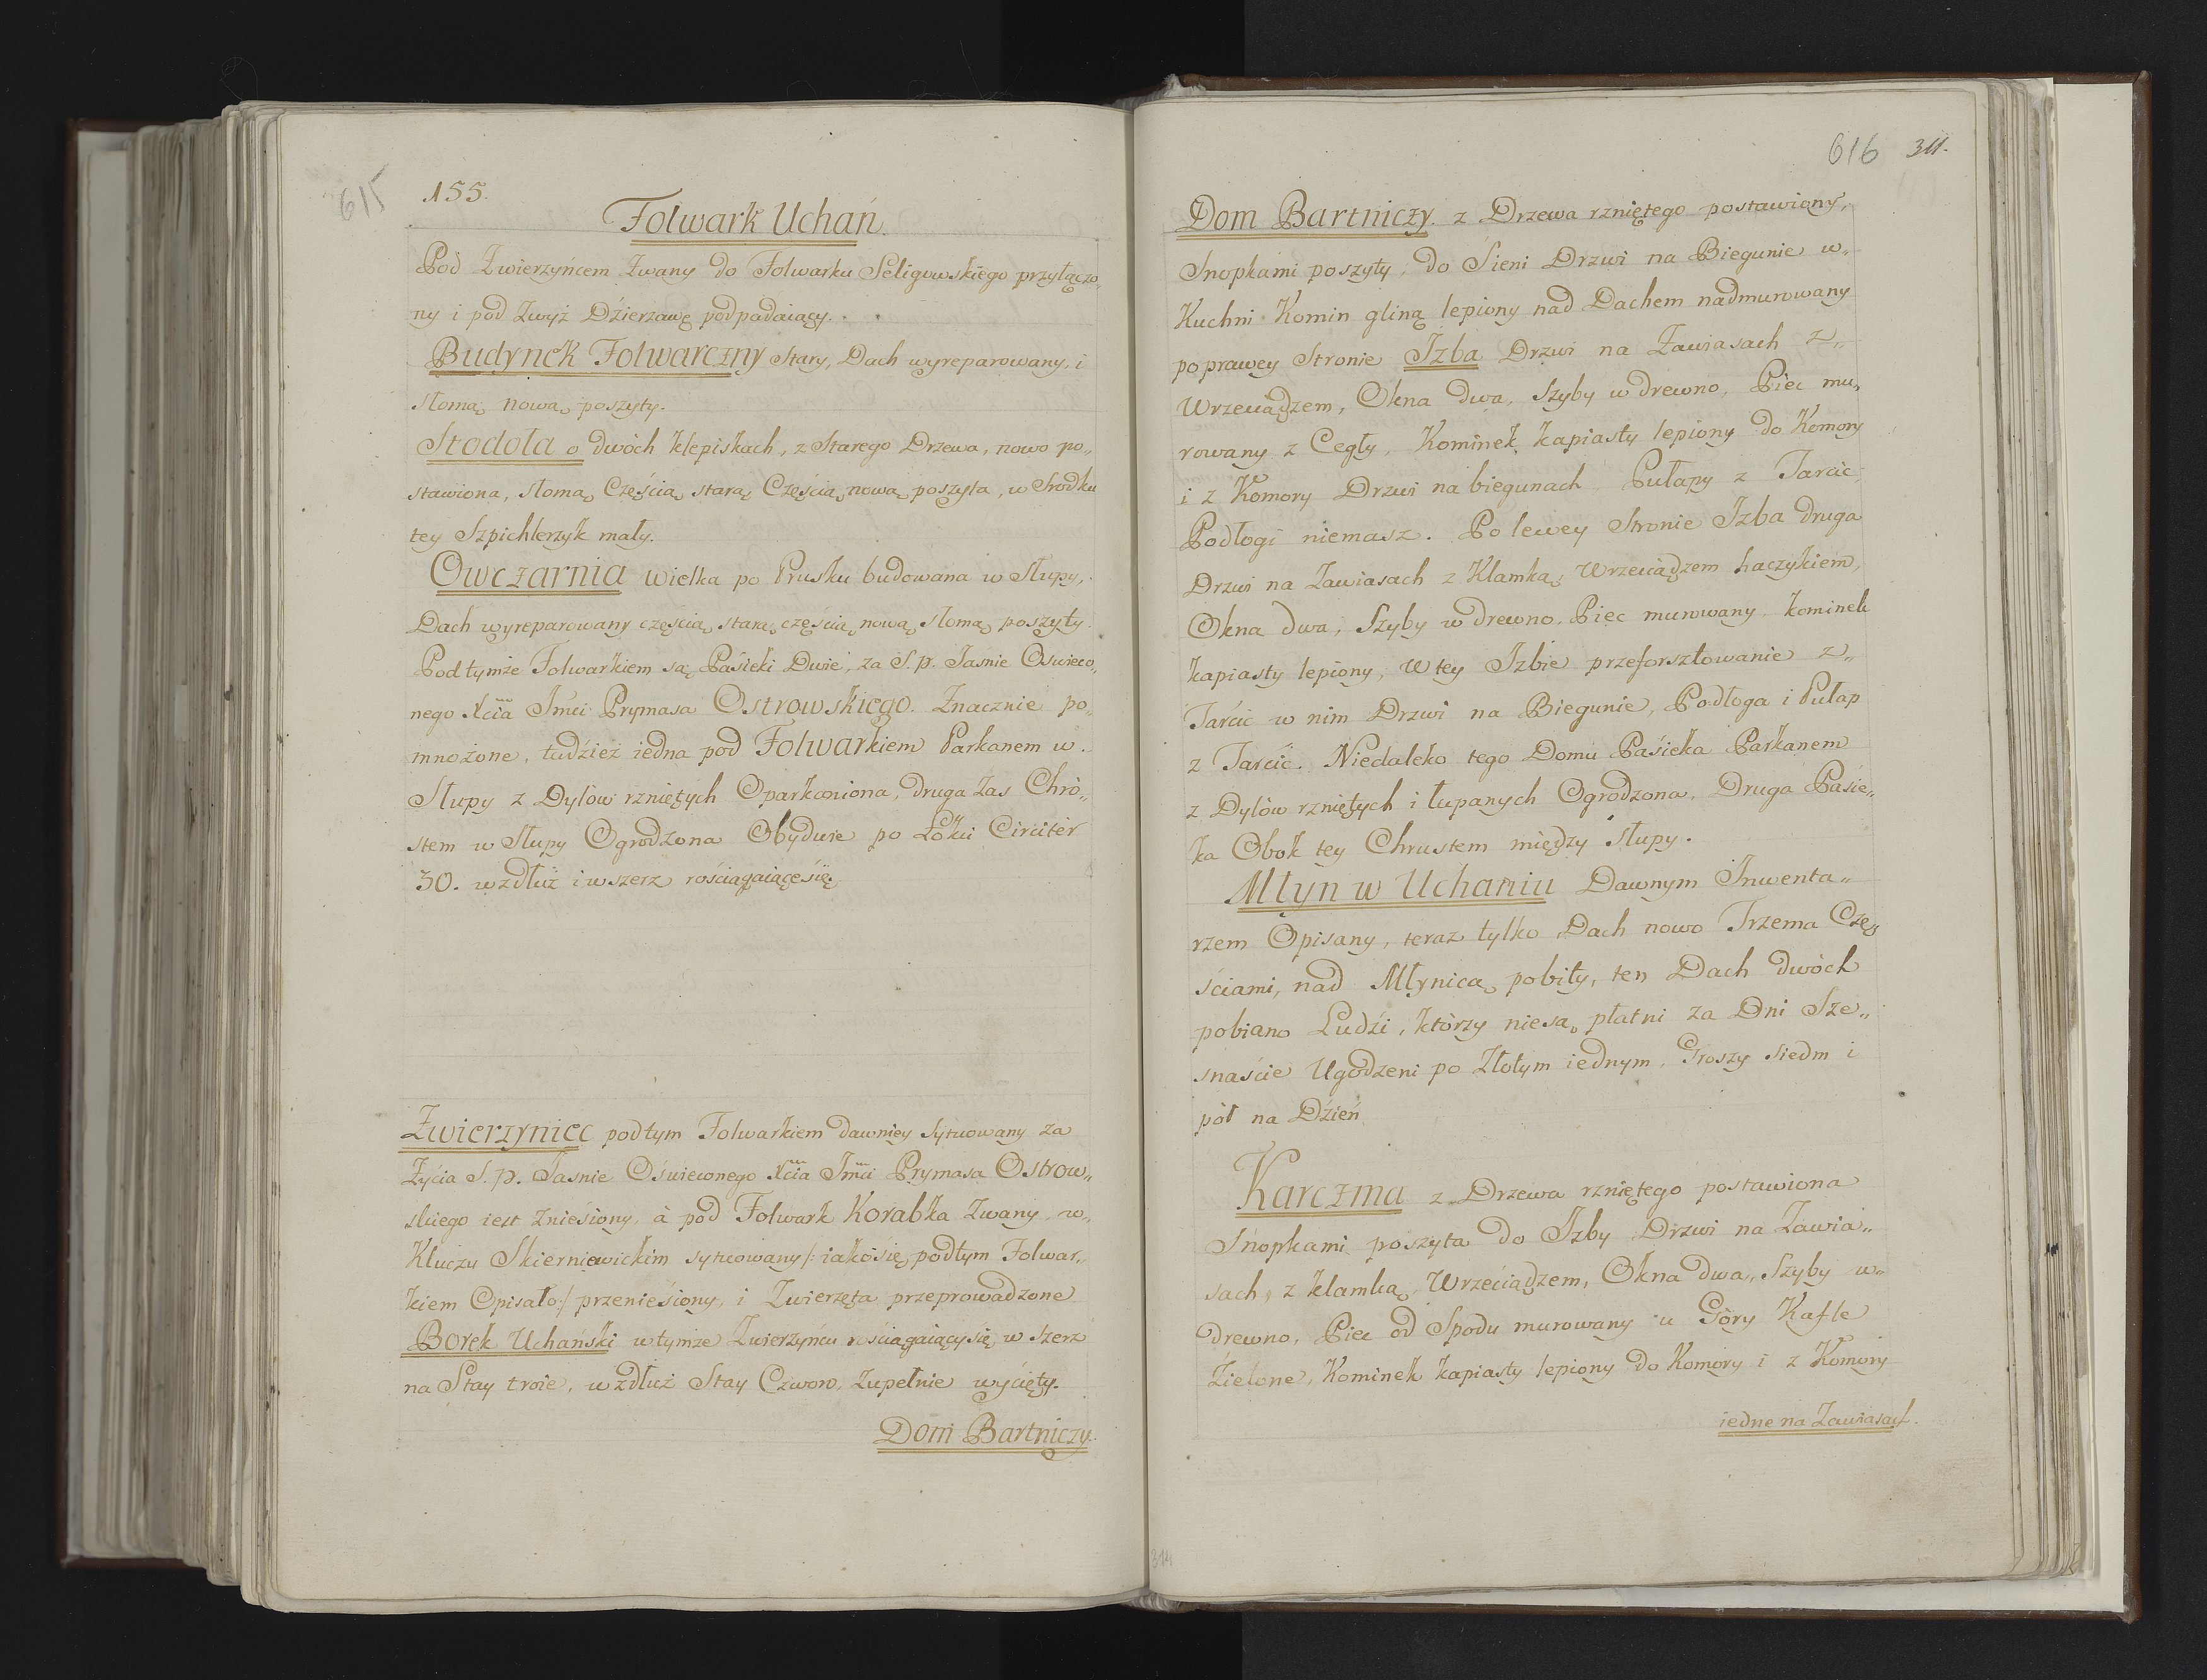 615
155.
Folwark Uchań.
Pod Zwierzyńcem Zwany do Folwarku Seligowskiego przyłączo„
ny i pod Zwyż Dźierzawę podpadaiący.
Budynek Folwarczny Stary, Dach wyreparowany, i
słomą nową poszyty.
Stodoła o dwóch klepiskach, z Starego Drzewa, nowo po„
stawiona, słomą Częścią starą Częścią nową poszyta, w Srodku
tey Szpichlerzyk mały.
Owczarnia wielka po Prusku budowana w Słupy,
Dach wyreparowany częścią starą, częścią nową słomą poszyty.
Pod tymże Folwarkiem są Paśieki Dwie, za S. p. Jaśnie Oswieco„
nego Xcia Jmci Prymasa Ostrowskiego. Znacznie po„
mnożone, tudźież iedna pod Folwarkiem Parkanem w
Słupy z Dylów rzniętych Oparkaniona, druga Zas Chró„
stem w Słupy Ogrodzona Obydwie po Łokci Circiter
30. wzdłuż i wszerz rościągaiące się.
Zwierzyniec pod tym Folwarkiem dawniey sytuowany za
Życia S. p. Jasnie Oświeconego Xcia Jmci Prymasa Ostrow„
skiego iest Zniesiony, à pod Folwark Korabka Zwany w„
Kluczu Skierniewickim sytuowany /: iako się pod tym Folwar„
kiem Opisało :/ przeniesiony, i Zwierzęta przeprowadzone
Borek Uchański w tymże Zwierzyńcu rościągaiący się w szerz
na Stay troie, w zdłuż Stay Czworo, Zupełnie wycięty.
Dom Bartniczy.
616 311.
Dom Bartniczy. z Drzewa rzniętego postawiony,
Snopkami poszyty, do Sieni Drzwi na Biegunie w„
Kuchni Komin gliną lepiony nad Dachem nadmurowany
po prawey Stronie Izba Drzwi na Zawiasach z„
Wrzeciądzem, Okna dwa, Szyby w drewno, Piec mu„
rowany z Cegły, Kominek kapiasty lepiony do Komory
i z Komory Drzwi na biegunach Pułapy z Tarcic,
Podłogi niemasz. Po lewey Stronie Izba druga
Drzwi na Zawiasach z Klamką, Wrzeciądzem haczykiem,
Okna dwa, Szyby w drewno, Piec murowany kominek
kapiasty lepiony, W tey Izbie przeforsztowanie z„
Tarcic w nim Drzwi na Biegunie, Podłoga i Pułap
z Tarcic. Niedaleko tego Domu Paśieka Parkanem
z Dylów rzniętych i łupanych Ogrodzona. Druga Paśie„
ka Obok tey Chrustem między Słupy.
Młyn w Uchaniu Dawnym Inwenta„
rzem Opisany, teraz tylko Dach nowo Trzema Czę„
ściami, nad Młynicą pobity, ten Dach dwóch
pobiano Ludźi, którzy niesą płatni za Dni Sze„
snaście Ugodzeni po Złotym iednym, Groszy siedm i
pół na Dźień
Karczma z Drzewa rzniętego postawiona
Snopkami poszyta do Izby Drzwi na Zawia„
sach, z klamką, Wrzeciądzem, Okna dwa, Szyby w„
drewno, Piec od Spodu murowany u Góry Kafle
Zielone, Kominek kapiasty lepiony do Komory i z Komory
iedne na Zawiasach.
314